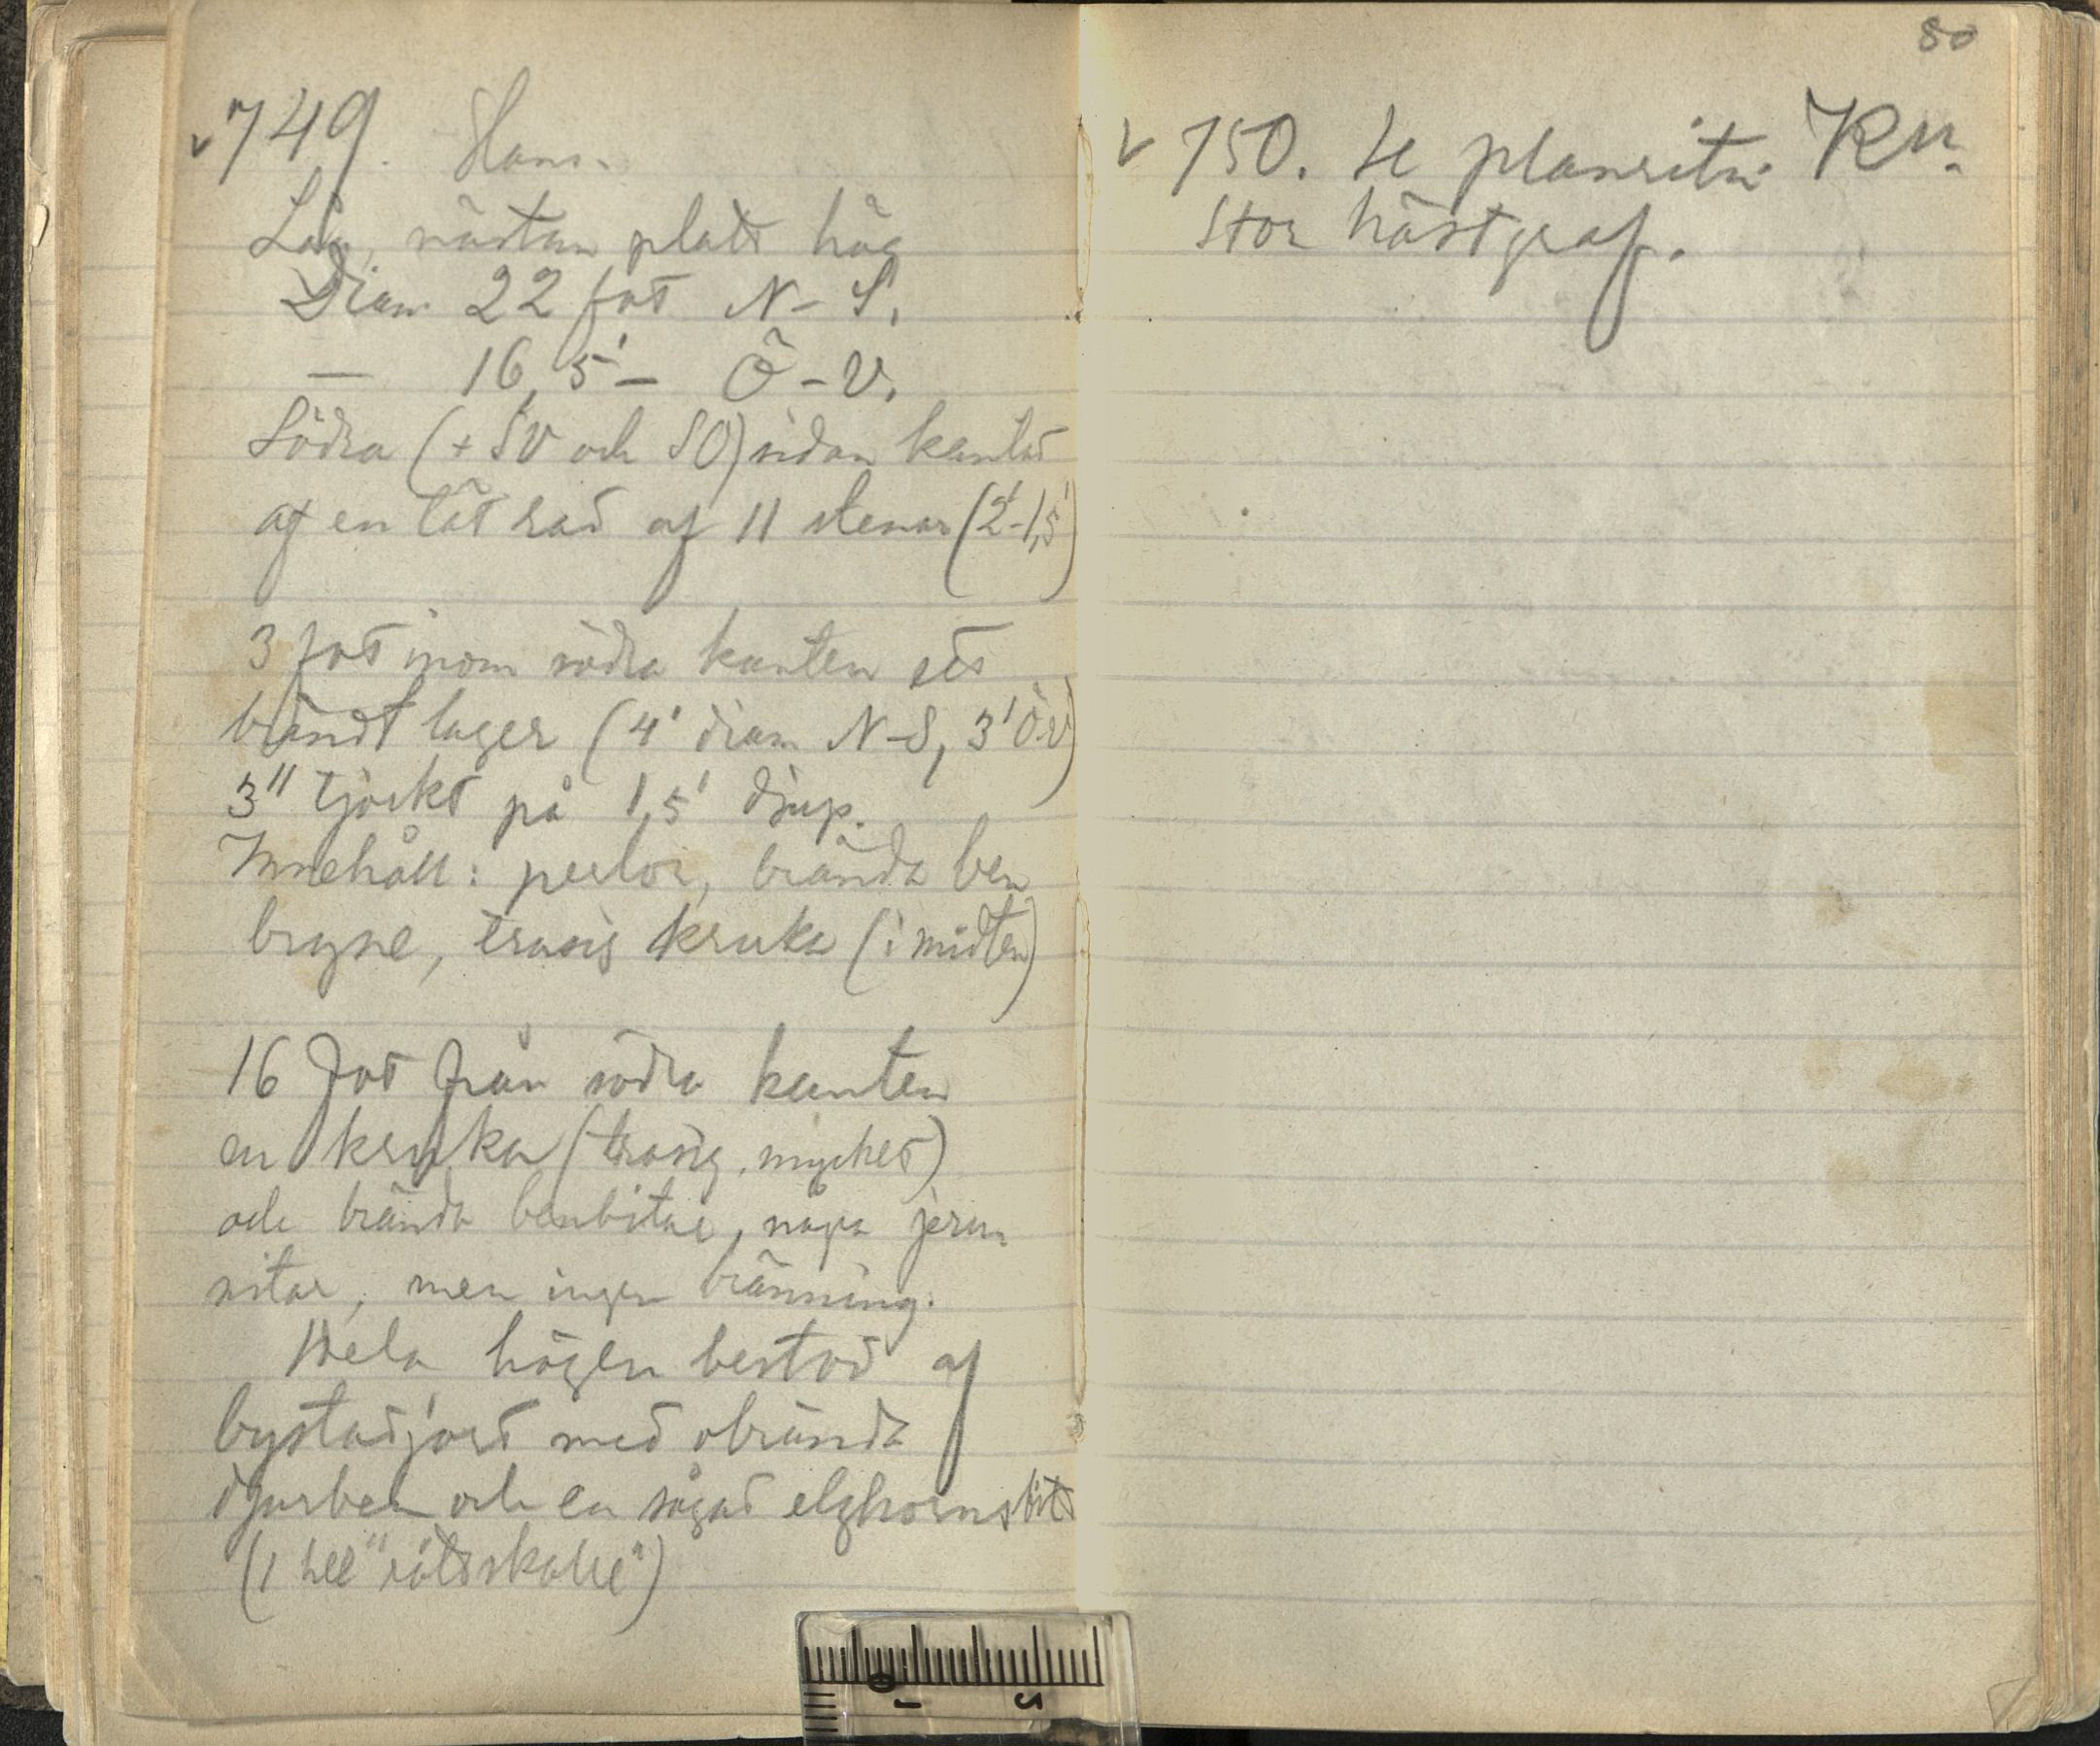 v 749. Hans.
Låg, nästan platt hög
Diam 22 fot N-S.
— 16,5' — Ö-V.
Södra (+ SV och SO) sidan kantad
af en tät rad af 11 stenar (2'-1,5')
3 fot inom södra kanten ett
brändt lager (4' diam N-S, 3' Ö-V)
3" tjockt på 1,5' djup.
Innehåll: perlor, brända ben
bryne, trasig kruka (i midten)
16 fot från södra kanten
en kruka (trasig, mycket)
och brända benbitar, några jern
nitar, men ingen bränning.
Hela högen bestod af
bystadjord med obrända
djurben och en sågad elghornsbit
(1 hel
80
v 750. Se planritn. Ru.
Stor hästgraf.